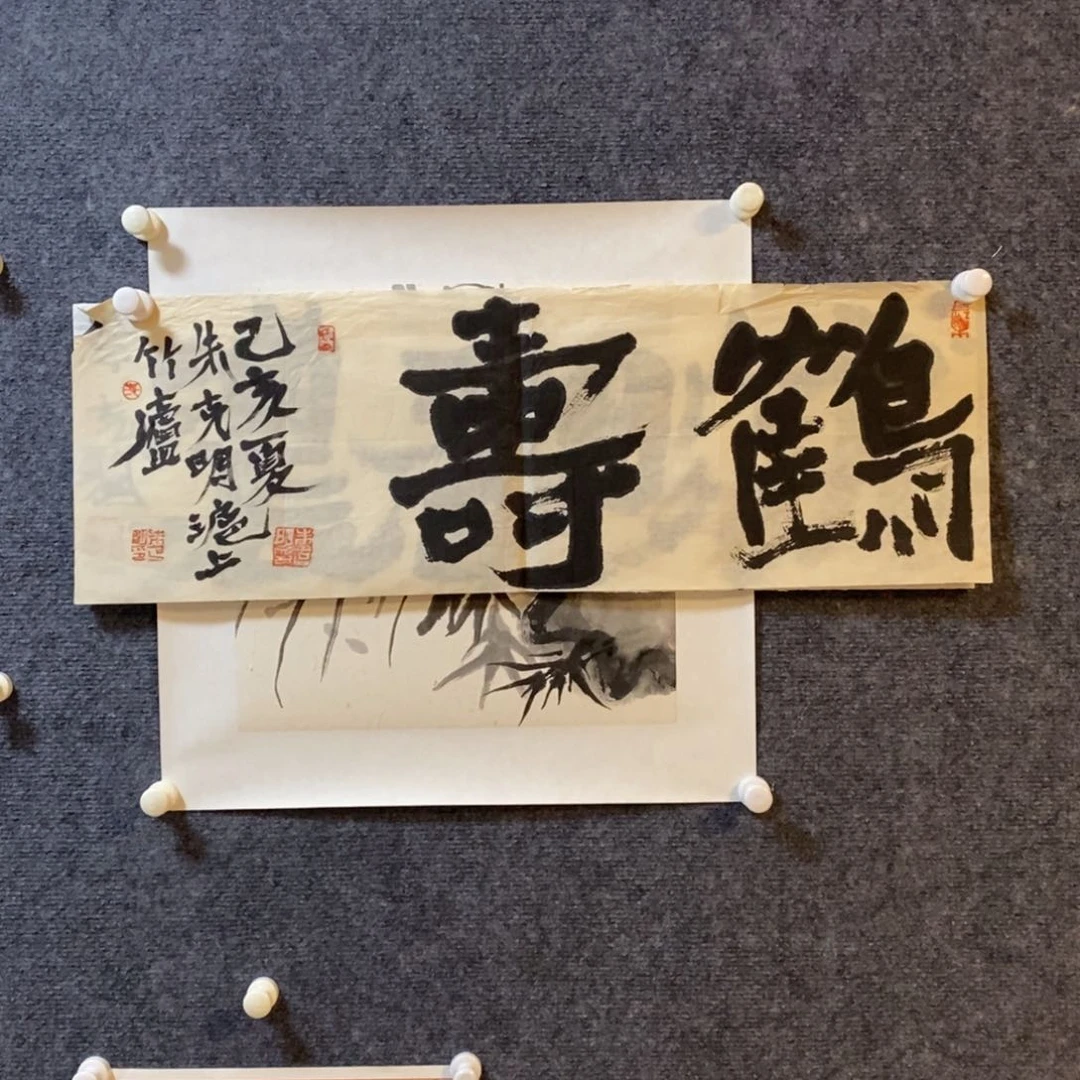 鶴壽
己亥夏
朱克明滬上
竹廬